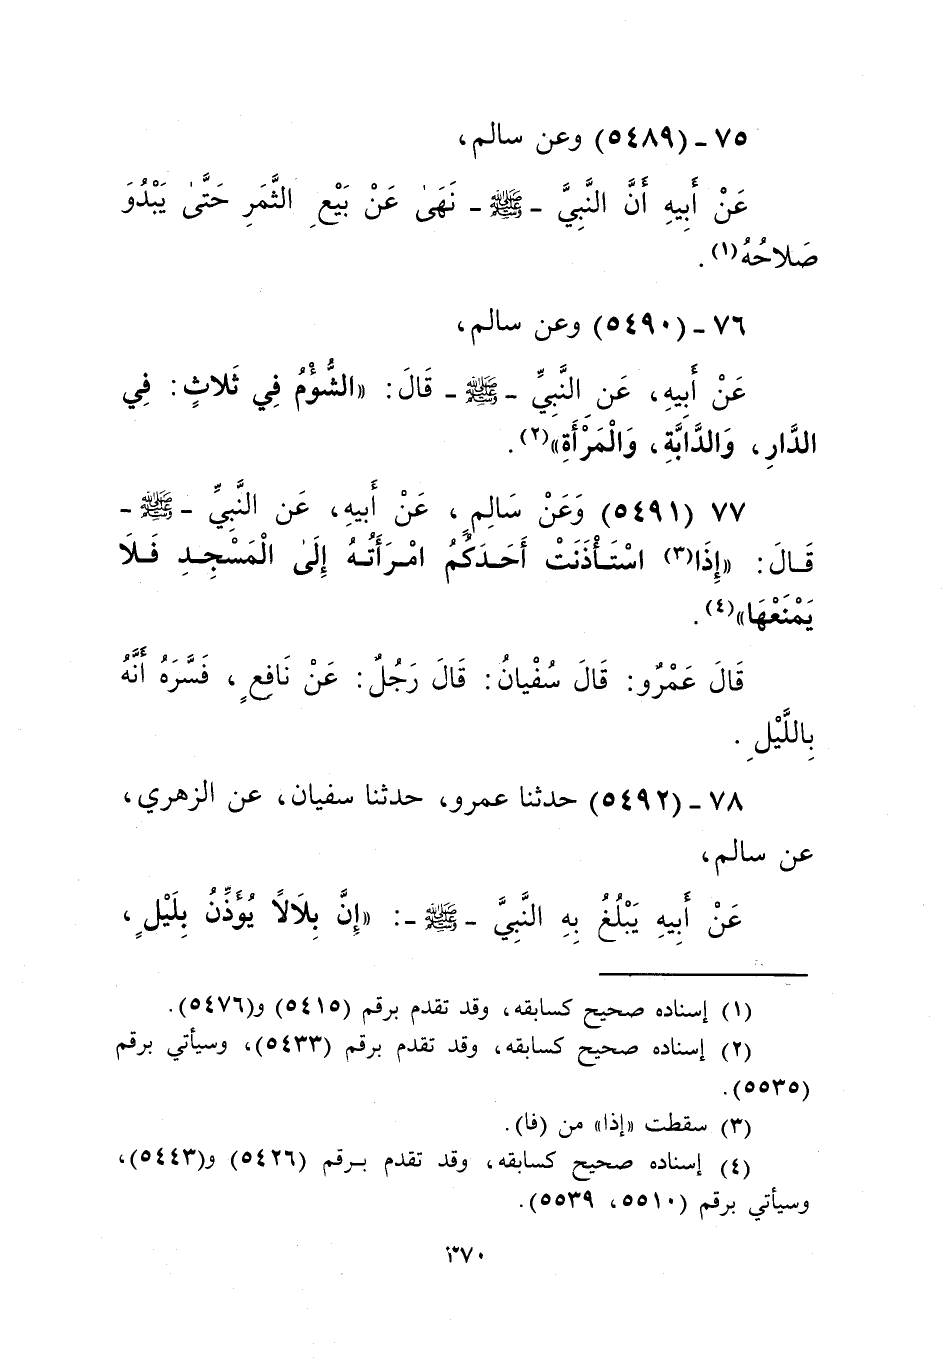 ٧٥ ـ (٥٤٨٩) وعن سالم،
عَنْ أَبِيهِ أَنَّ النَّبِيَّ ـ ﷺ ـ نَهَىٰ عَنْ بَيْعِ الثَّمَرِ حَتَّىٰ يَبْدُوَ
صَلاحُهُ(١).
٧٦ ـ (٥٤٩٠) وعن سالم،
عَنْ أَبِيهِ، عَنِ النَّبِيِّ ـ ﷺ ـ قَالَ: «الشُّؤْمُ فِي ثَلاثٍ: فِي
الدَّارِ، وَالدَّابَّةِ، وَالْمَرْأَةِ»(٢).
٧٧ (٥٤٩١) وَعَنْ سَالِمٍ، عَنْ أَبِيهِ، عَنِ النَّبِيِّ ـ ﷺ ـ
قَالَ: «إِذَا(٣) اسْتَأْذَنَتْ أَحَدَكُمُ امْرَأَتُهُ إِلَىٰ الْمَسْجِدِ فَلَا
يَمْنَعْهَا»(٤).
قَالَ عَمْرٌو: قَالَ سُفْيانُ: قَالَ رَجُلٌ: عَنْ نَافِعٍ، فَسَّرَهُ أَنَّهُ
بِاللَّيْلِ.
٧٨ ـ (٥٤٩٢) حدثنا عمرو، حدثنا سفيان، عن الزهري،
عن سالم،
عَنْ أَبِيهِ يَبْلُغُ بِهِ النَّبِيَّ ـ ﷺ ـ: «إِنَّ بِلَالاً يُؤَذِّنُ بِلَيْلٍ،
(١) إسناده صحيح كسابقه، وقد تقدم برقم (٥٤١٥) و(٥٤٧٦).
(٢) إسناده صحيح كسابقه، وقد تقدم برقم (٥٤٣٣)، وسيأتي برقم
(٥٥٣٥).
(٣) سقطت «إذا» من (فا).
(٤) إسناده صحيح كسابقه، وقد تقدم برقم (٥٤٢٦) و(٥٤٤٣)،
وسيأتي برقم (٥٥١٠، ٥٥٣٩).
٣٧٠